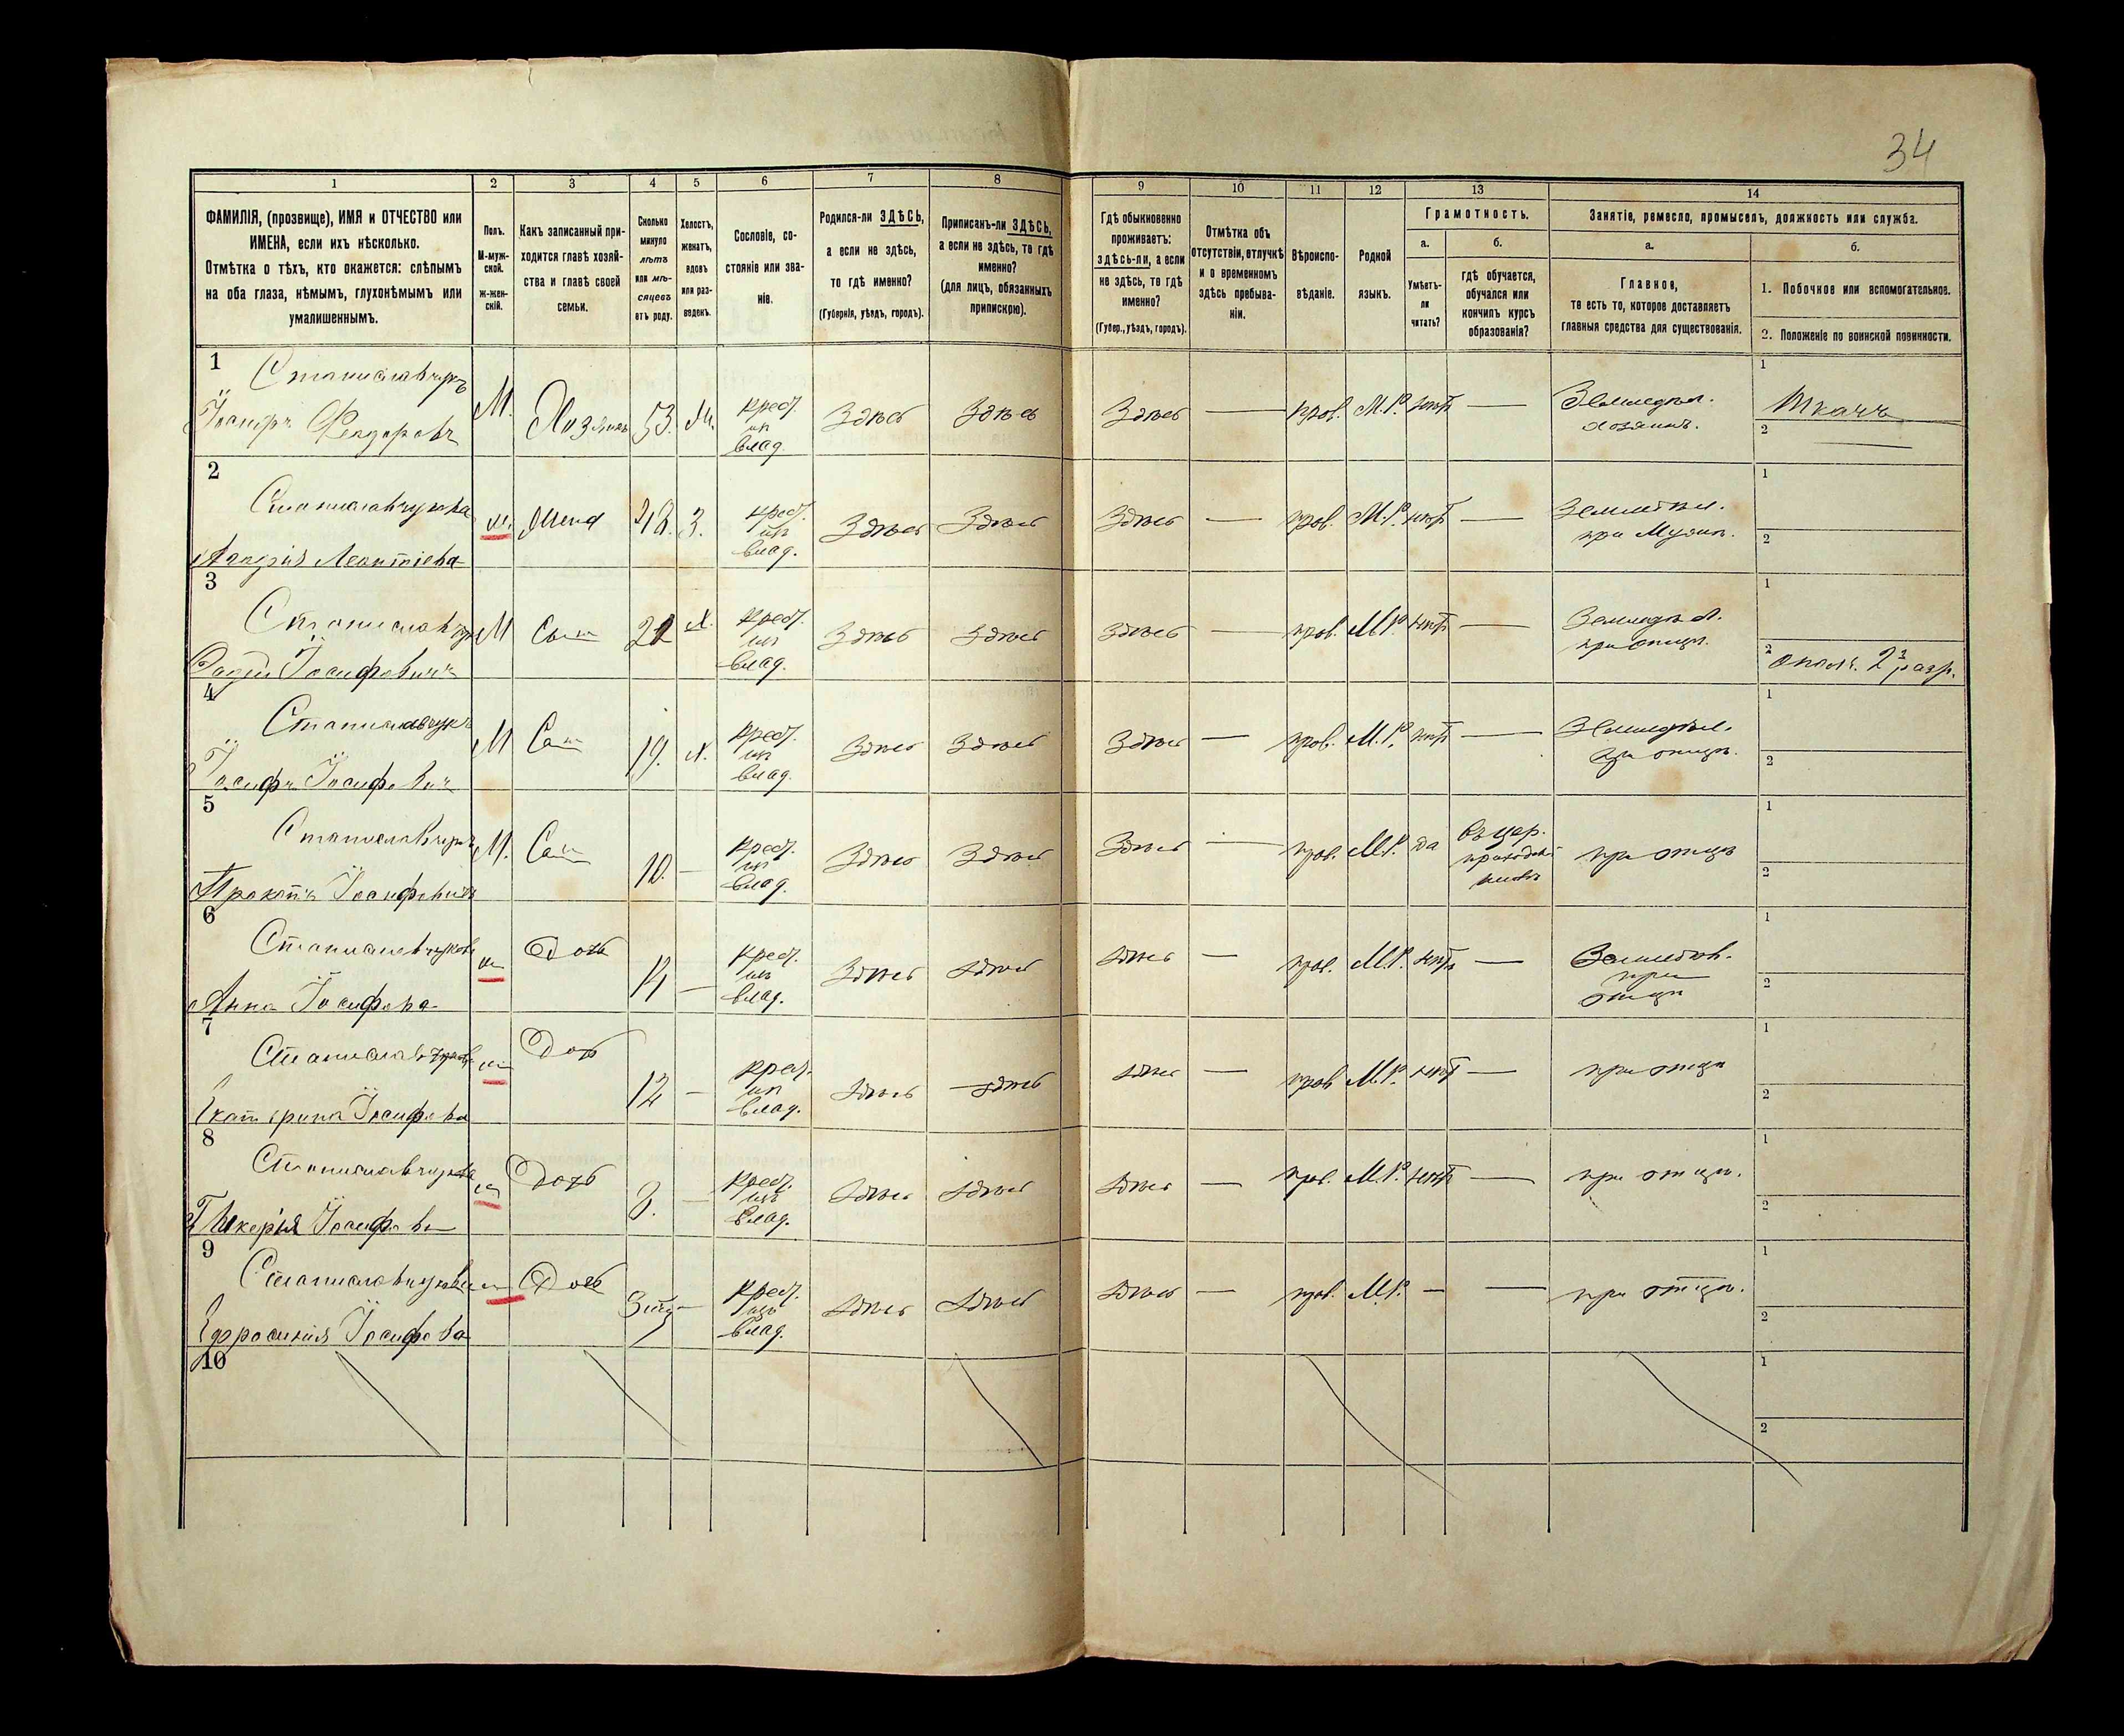 34
1 2 3 4 5 6 7 8 9 10 11 12 13 14
ФАМИЛІЯ, (прозвище), ИМЯ и ОТЧЕСТВО или
ИМЕНА, если ихъ нѣсколько.
Отмѣтка о тѣхъ, кто окажется: слѣпымъ
на оба глаза, нѣмымъ, глухонѣмымъ или
умалишеннымъ.
Полъ.
М-муж-
ской.
Ж-жен-
скій.
Какъ записанный при-
ходится главѣ хозяй-
ства и главѣ своей
семьи.
Сколько
минуло
лѣтъ
или мѣ-
сяцевъ
отъ роду.
Холостъ,
женатъ,
вдовъ
или раз-
веденъ.
Сословіе, со-
стояніе или зва-
ніе.
Родился-ли ЗДѢСЬ,
а если не здѣсь,
то гдѣ именно?
(Губернія, уѣздъ, городъ).
Приписанъ-ли ЗДѢСЬ,
а если не здѣсь, то гдѣ
именно?
(для лицъ, обязанныхъ
припискою).
Гдѣ обыкновенно
проживаетъ:
здѣсь-ли, а если
не здѣсь, то гдѣ
именно?
(Губер., уѣздъ, городъ).
Отмѣтка объ
отсутствіи, отлучкѣ
и о временномъ
здѣсь пребыва-
ніи.
Вѣроиспо-
вѣданіе.
Родной
языкъ.
Грамотность.
а.
Умѣетъ-
ли
читать?
б.
гдѣ обучается,
обучался или
кончилъ курсъ
образованія?
Занятіе, ремесло, промыселъ, должность или служба.
а.
Главное,
то есть то, которое доставляетъ
главныя средства для существованія.
б.
1. Побочное или вспомогательное.
2. Положеніе по воинской повинности.
1
Станиславчукъ
Іосифъ Федоровъ
М. Хозяинъ 53.
крест.
из
влад.
Здѣсь Здѣсь Здѣсь — прав. М.Р. нѣтъ —
Земледѣл.
хозяинъ.
1 Ткачъ
2 —
2
Станиславчукова
Леонтіева
ж. Жена 48. З.
крест.
из
влад.
Здѣсь Здѣсь Здѣсь — прав. М.Р. нѣтъ —
Земледѣл.
при Мужѣ.
1
2
3
Станиславчукъ
Іосифовичъ
М Сын Х.
крест.
из
влад.
Здѣсь Здѣсь Здѣсь — прав. М.Р. нѣтъ —
Земледѣл.
при отцѣ.
1
2 ополч. 2 разр.
4
Станиславчукъ
Іосифъ Іосифович
М Сын 19. Х.
крест.
из
влад.
Здѣсь Здѣсь Здѣсь — прав. М.Р. нѣтъ —
Земледѣл.
при отцѣ.
1
2
5
Станиславчукъ
Прокопъ Іосифовичъ
М. Сын 10. —
крест.
из
влад.
Здѣсь Здѣсь Здѣсь — прав. М.Р. да
въ цер.
приходск.
школѣ
при отцѣ
1
2
6
Станиславчукова
Анна Іосифова
ж Дочь 14 —
крест.
из
влад.
Здѣсь Здѣсь Здѣсь — прав. М.Р. нѣтъ —
Земледѣл.
при
отцѣ
1
2
7
Станиславчукова
Екатерина Іосифова
ж Дочь 12 —
крест.
из
влад.
Здѣсь Здѣсь Здѣсь — прав М.Р. нѣтъ —
при отцѣ
1
2
8
Станиславчукова
Гликерія Іосифова
ж Дочь —
крест.
изъ
влад.
Здѣсь Здѣсь Здѣсь — прав. М.Р. нѣтъ —
при отцѣ.
1
2
9
Станиславчукова
Ефросинія Іосифова
ж Дочь —
крест.
изъ
влад.
Здѣсь Здѣсь Здѣсь — прав. М.Р. — —
при отцѣ.
1
2
10
1
2